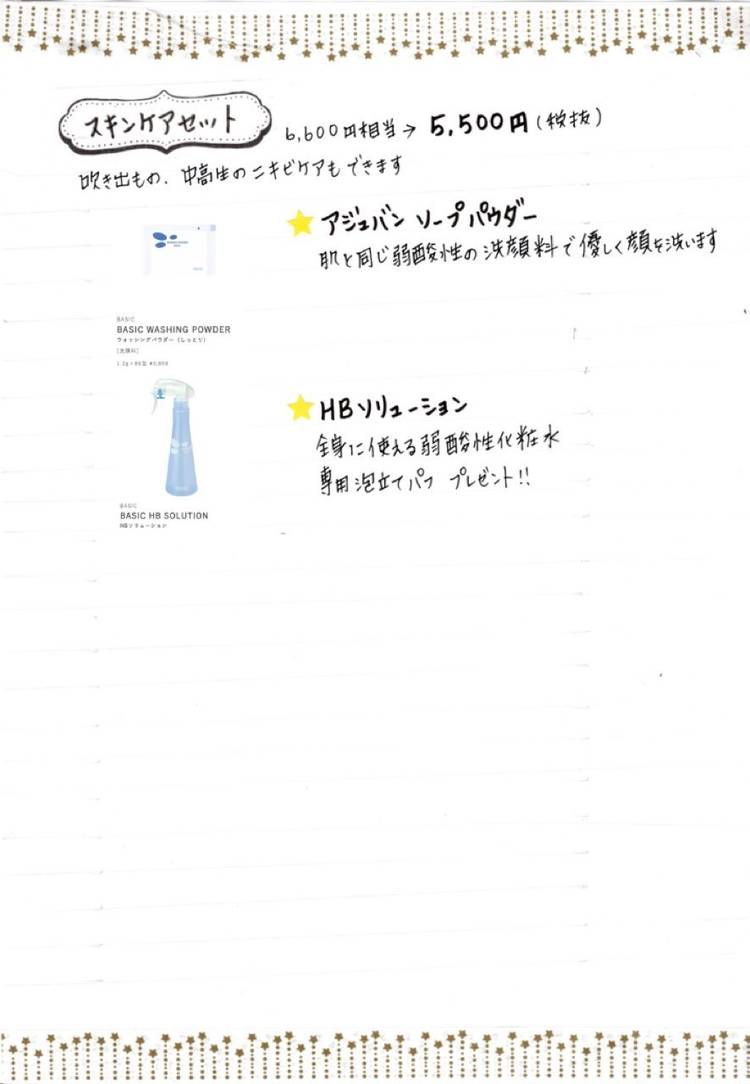 スキンケアセット
6,600円相当→ 5,500円(税抜)
吹き出もの、中高生のニキビケアもできます
アジュバン ソープパウダー
肌と同じ弱酸性の洗顔料で優しく顔を洗います
BASIC
BASIC WASHING POWDER
ウォッシングパウダー(しっとり)
[洗顔料]
HBソリューション
全身に使える弱酸性化粧水
専用泡立てパフ プレゼント!!
BASIC
BASIC HB SOLUTION
HBソリューション